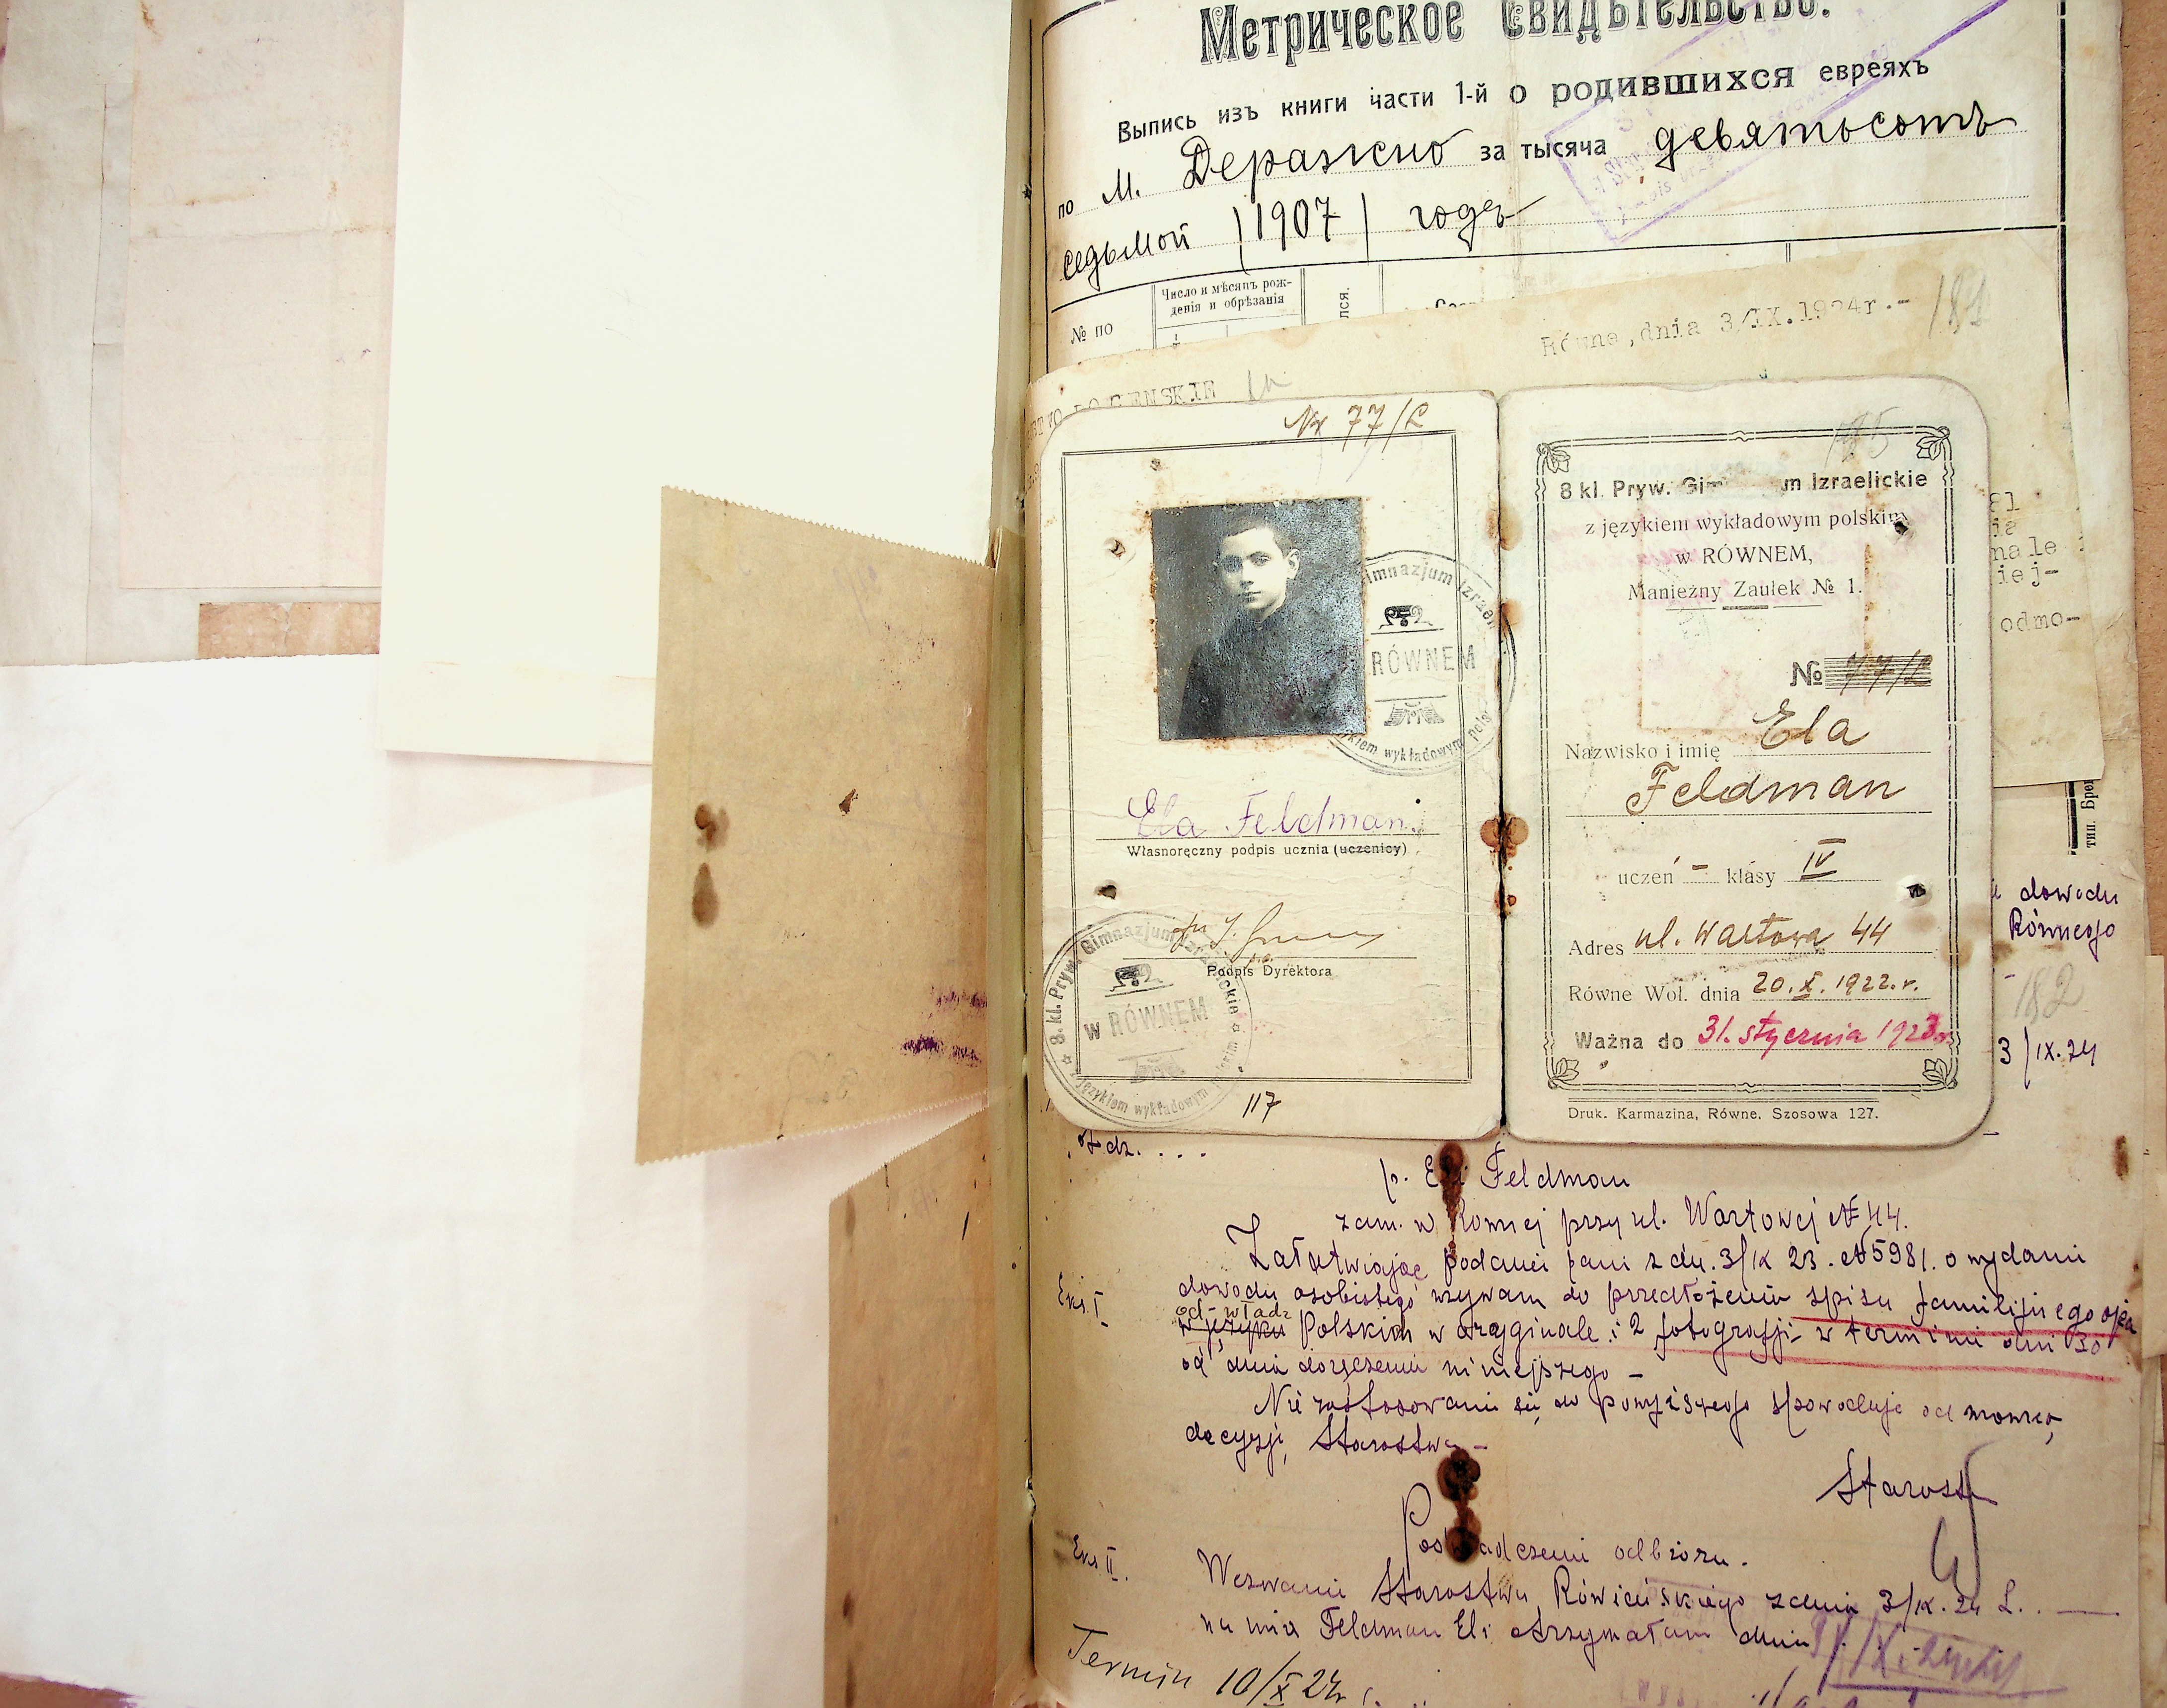 Метрическое свидѣтельство.
Выпись изъ книги части 1-й о родившихся евреяхъ
по м. Деражно за тысяча девятьсотъ
седьмой (1907) годъ
№ по
Число и мѣсяцъ рож-
денія и обрѣзанія
лся.
Równe, dnia 3/IX.1924r.-
181
Nr 77/L
Gimnazjum Izrael
RÓWNEM
językiem wykładowym pols
Ela Feldman.
Własnoręczny podpis ucznia (uczenicy)
Podpis Dyrektora
8. kl. Pryw. Gimnazjum Izraelickie
W RÓWNEM
z językiem wykładowym polskim
117
185
8 kl. Pryw. Gim m Izraelickie
z językiem wykładowym polskim
w RÓWNEM,
Manieżny Zaułek № 1.
№ 77/L
Nazwisko i imię Ela
Feldman
uczeń – klasy IV
Adres ul. Wartowa 44
Równe Woł. dnia 20.X.1922.r.
Ważna do 31. stycznia 1923r.
Druk. Karmazina, Równe, Szosowa 127.
81
ia
nale i
iej-
odmo-
тип. Бре
dowodu
Równego
182
3/IX.24
p. Eli Feldman
zam. w Równej przy ul. Wartowej № 44.
Załatwiając podanie pani z dn. 3/IX 23. № 5981. o wydanie
Eks. I
dowodu osobistego wzywam do przedłożenia spisu familijnego ojca
od władz
w języku Polskich w oryginale i 2 fotografji w terminie dni 30
od dnia doręczenia niniejszego –
Nie zastosowanie się do powyższego spowoduje odmowną
decyzję Starostwa –
Starosta
Poświadczenie odbioru.
Eks II.
Wezwanie Starostwa Rówieńskiego z dnia 3/IX.24 L. —
na imię Feldman Eli otrzymałam dnia
Termin 10/X 24r